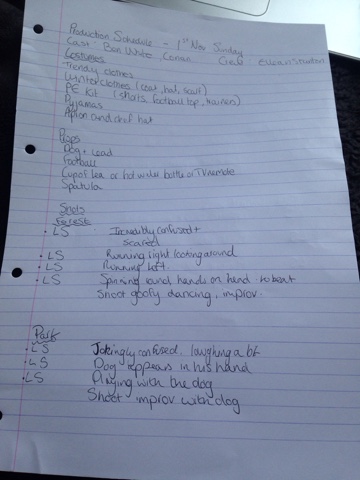 Production Schedule - 1st Nov Sunday
Cast Ben White, Conan. Crew
Costumes
Trendy clothes
Winter clothes (coat, hat, scarf)
PE Kit (shorts, football top, trainers)
Pyjamas
Apron and chef hat
Props
Dog + Lead
Football
Cup of tea or hot water bottle or TV remote
Spatula
Shots
Forest
• LS Incredibly confused +
scared
• LS Running right looking around
• LS Running left.
• LS Spinning round hands on head to beat
Shoot goofy dancing, improv.
Park
• LS Jokingly confused, laughing a bit
• LS Dog appears in his hand
• LS Playing with the dog
Shoot improv with dog